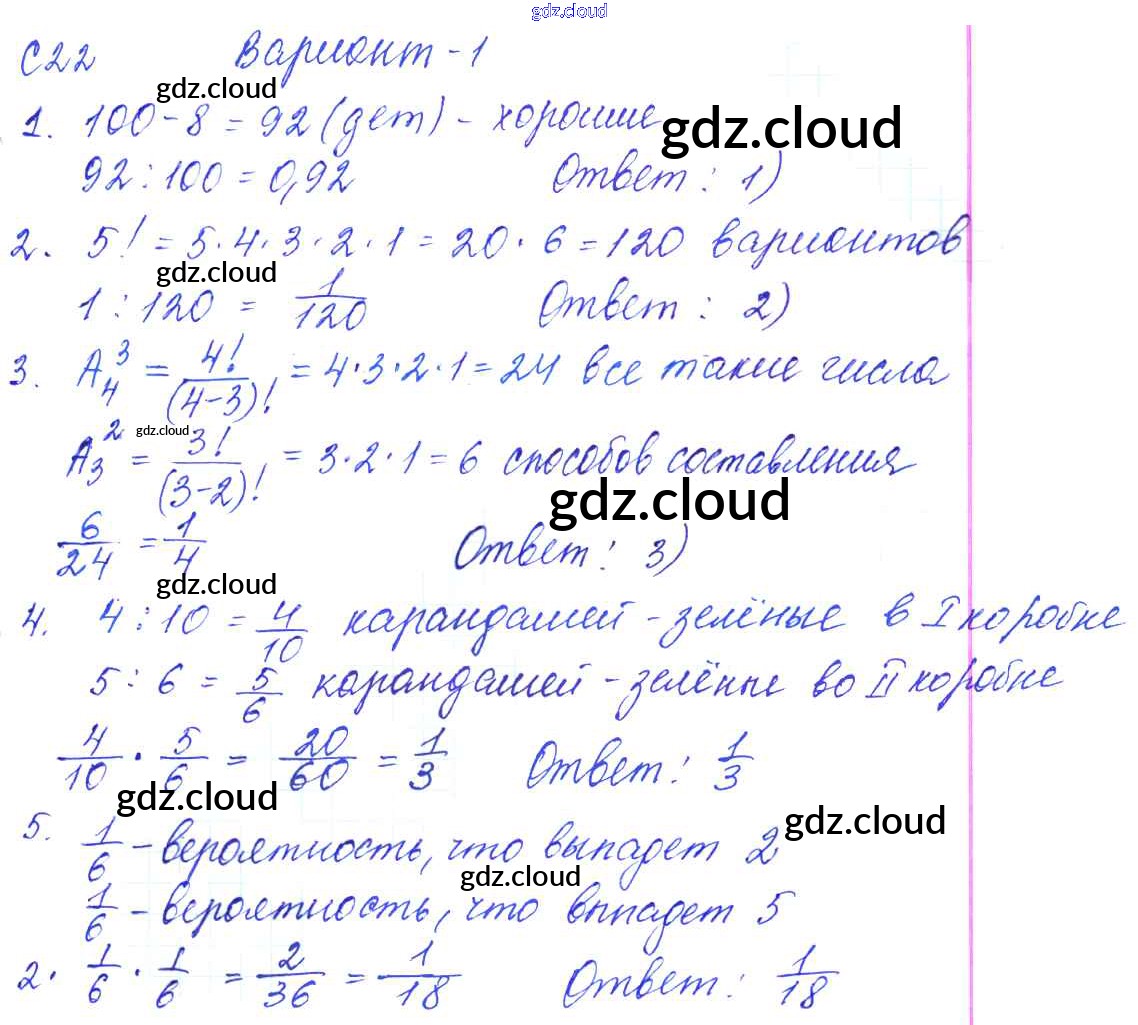 gdz.cloud
С22 Вариант-1
gdz.cloud
1. 100-8=92 (дет) - хорошие
gdz.cloud
92:100=0,92 Ответ: 1)
2. 5! = 5·4·3·2·1=20·6=120 вариантов
gdz.cloud
1:120 = 1/120 Ответ: 2)
3. A₄³ = 4!/(4-3)! = 4·3·2·1=24 все такие числа
gdz.cloud
A₃² = 3!/(3-2)! = 3·2·1=6 способов составления
gdz.cloud
6/24 = 1/4 Ответ: 3)
gdz.cloud
4. 4:10 = 4/10 карандашей - зелёные в I коробке
5:6 = 5/6 карандашей - зелёные во II коробке
4/10 · 5/6 = 20/60 = 1/3 Ответ: 1/3
gdz.cloud
gdz.cloud
5. 1/6 - вероятность, что выпадет 2
gdz.cloud
1/6 - вероятность, что выпадет 5
2· 1/6 · 1/6 = 2/36 = 1/18 Ответ: 1/18